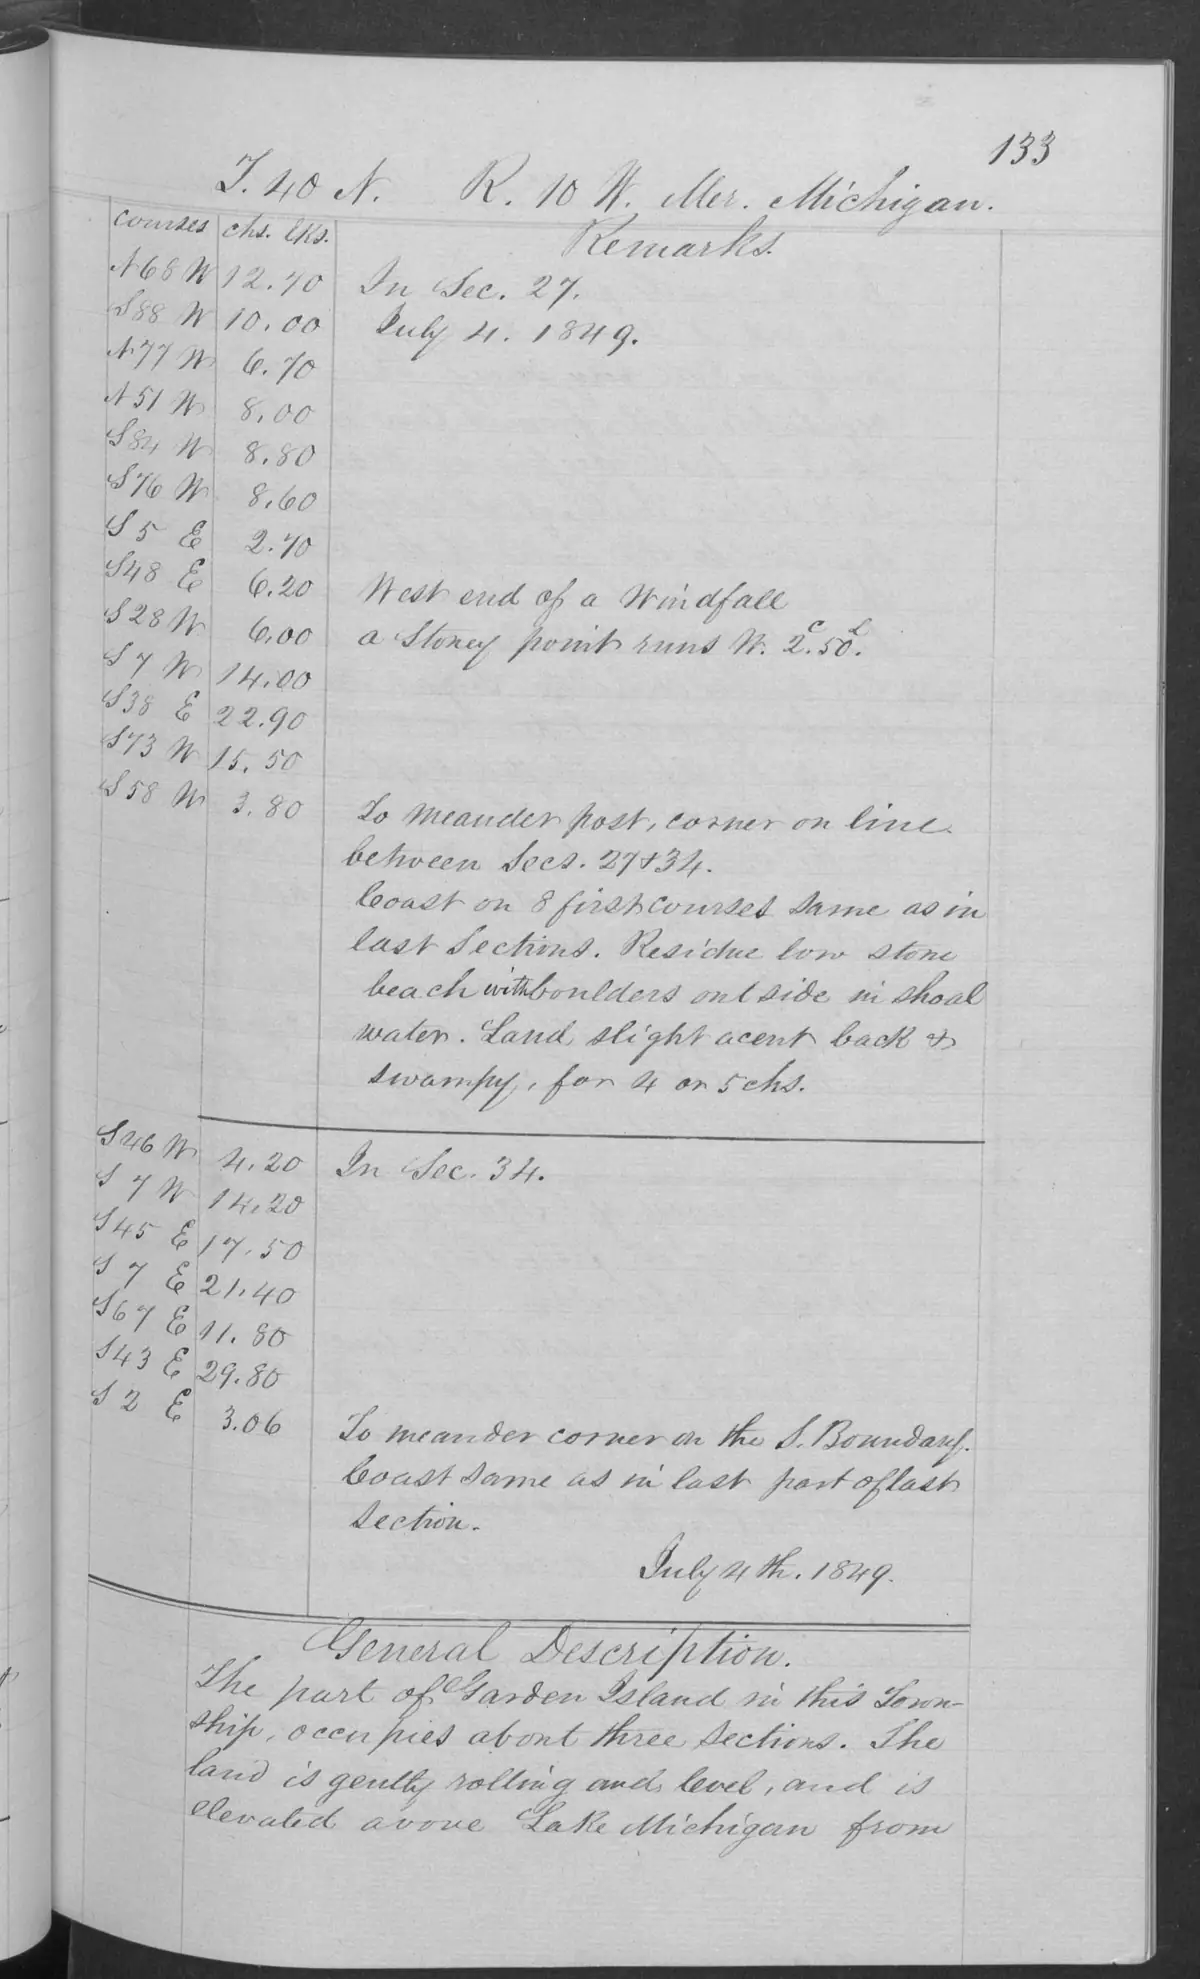 133
T. 40 N. R. 10 W. Mer. Michigan.
courses chs. lks. Remarks.
N68 W 12.70 In Sec. 27.
S88 W 10.00 July 4. 1849.
N77 W 6.70
N51 W 8.00
S84 W 8.80
S76 W 8.60
S 5 E 2.70
S48 E 6.20 West end of a Windfall
S28 W 6.00 a Stoney point runs W. 2.c 50.l
S 7 W 14.00
S38 E 22.90
S73 W 15.50
S58 W 3.80 To meander post, corner on line
between Secs. 27 & 34.
Coast on 8 first courses same as in
last Sections. Residue low stone
beach with boulders outside in shoal
water. Land slight acent back &
swampy, for 4 or 5 chs.
S46 W 4.20 In Sec. 34.
S 7 W 14.20
S45 E 17.50
S 7 E 21.40
S67 E 11.80
S43 E 29.80
S 2 E 3.06 To meander corner on the S. Boundary.
Coast same as in last part of last
section.
July 4th. 1849.
General Description.
The part of Garden Island in this Town-
ship, occupies about three sections. The
land is gently rolling and level, and is
elevated above Lake Michigan from